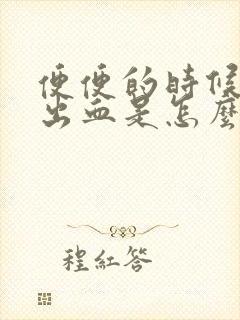 便便的時候
出血是怎麼
程紅答